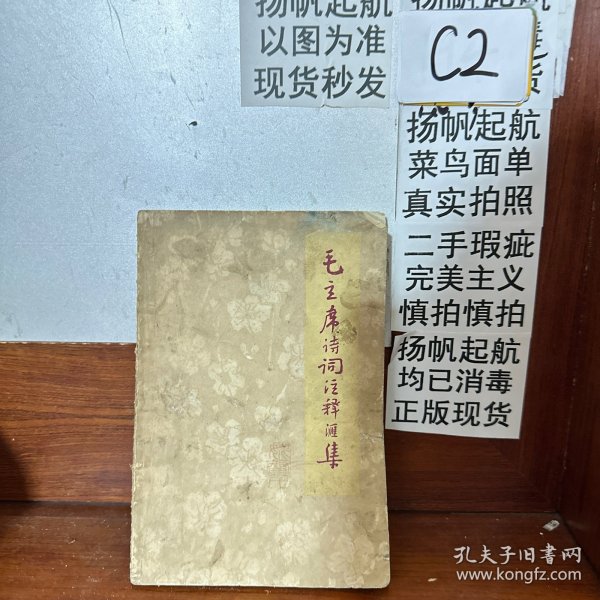 扬帆起航
以图为准
现货秒发
C2
扬帆起航
菜鸟面单
真实拍照
二手瑕疵
完美主义
慎拍慎拍
扬帆起航
均已消毒
正版现货
毛主席诗词注释汇集
孔夫子旧书网
www.kongfz.com